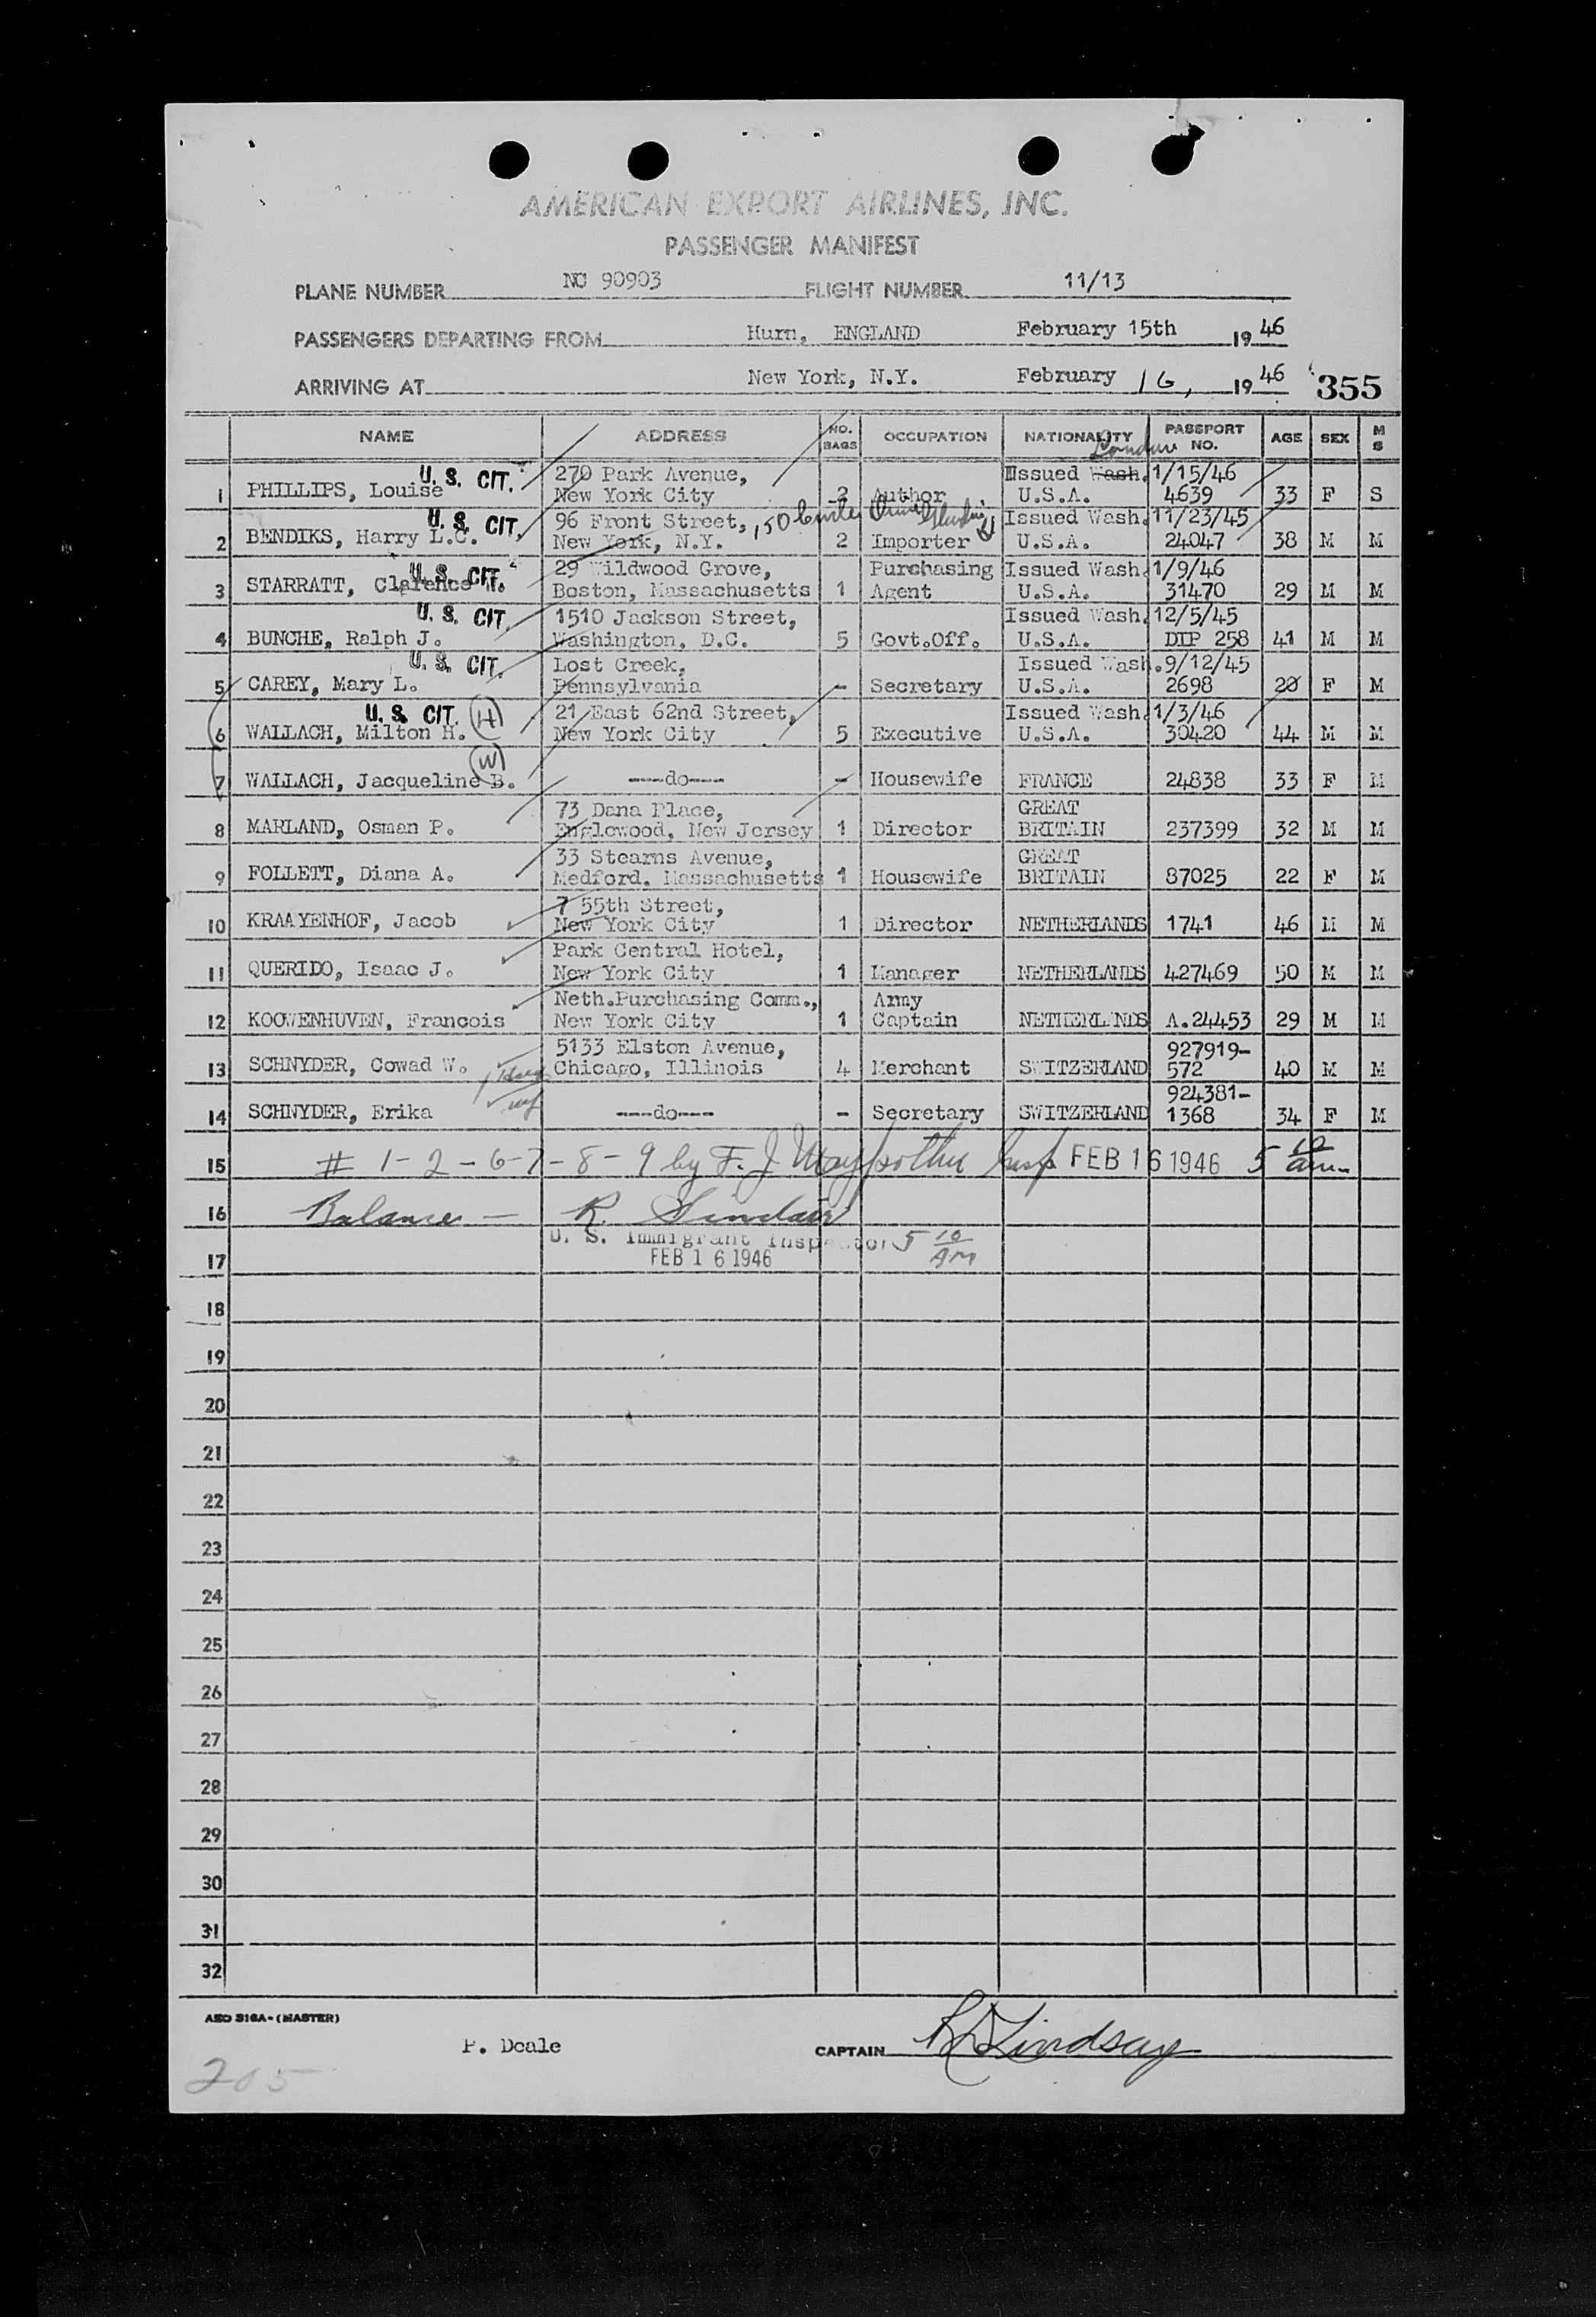 AMERICAN EXPORT AIRLINES, INC.
PASSENGER MANIFEST
PLANE NUMBER NC 90903 FLIGHT NUMBER 11/13
PASSENGERS DEPARTING FROM Hurn, ENGLAND February 15th 19 46
ARRIVING AT New York, N.Y. February 16, 19 46 355
NAME ADDRESS NO. BAGS OCCUPATION NATIONALITY PASSPORT NO. AGE SEX M S
London
U. S. CIT. 270 Park Avenue, Issued Wash. 1/15/46
1 PHILLIPS, Louise New York City 2 Author U.S.A. 4639 33 F S
U. S. CIT. 96 Front Street, 150 Issued Wash. 11/23/45
2 BENDIKS, Harry L.C. New York, N.Y. 2 Importer U.S.A. 24047 38 M M
U. S. CIT. 29 Wildwood Grove, Purchasing Issued Wash. 1/9/46
3 STARRATT, Clarence Boston, Massachusetts 1 Agent U.S.A. 31470 29 M M
U. S. CIT. 1510 Jackson Street, Issued Wash. 12/5/45
4 BUNCHE, Ralph J. Washington, D.C. 5 Govt.Off. U.S.A. DIP 258 41 M M
U. S. CIT. Lost Creek, Issued Wash. 9/12/45
5 CAREY, Mary L. Pennsylvania - Secretary U.S.A. 2698 20 F M
U. S. CIT. (H) 21 East 62nd Street, Issued Wash. 1/3/46
6 WALLACH, Milton H. New York City 5 Executive U.S.A. 30420 44 M M
(W)
7 WALLACH, Jacqueline B. ----do---- - Housewife FRANCE 24838 33 F M
73 Dana Place, GREAT
8 MARLAND, Osman P. Englewood, New Jersey 1 Director BRITAIN 237399 32 M M
33 Stearns Avenue, GREAT
9 FOLLETT, Diana A. Medford, Massachusetts 1 Housewife BRITAIN 87025 22 F M
7 55th Street,
10 KRAAYENHOF, Jacob New York City 1 Director NETHERLANDS 1741 46 M M
Park Central Hotel,
11 QUERIDO, Isaac J. New York City 1 Manager NETHERLANDS 427469 50 M M
Neth.Purchasing Comm., Army
12 KOOWENHUVEN, Francois New York City 1 Captain NETHERLANDS A.24453 29 M M
5133 Elston Avenue, 927919-
13 SCHNYDER, Cowad W. Chicago, Illinois 4 Merchant SWITZERLAND 572 40 M M
924381-
14 SCHNYDER, Erika ----do---- - Secretary SWITZERLAND 1368 34 F M
15 # 1-2-6-7-8-9 by F. J. Insp FEB 16 1946 5 10 am
16 Balance - R. Sinclair
U. S. Immigrant Inspector 5 10 AM
17 FEB 16 1946
18
19
20
21
22
23
24
25
26
27
28
29
30
31
32
AEO 316A-(MASTER)
P. Deale CAPTAIN R D Lindsay
205